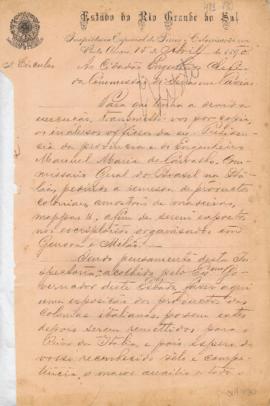 Estado do Rio Grande do Sul
Inspectoria Especial de Terras e Colonisação
Porto Alegre 15 de Abril de 1890
Circular
Ao Cidadão Engenheiro Chefe
da Commissão de
Para que tenha a devida
execução, transmitto-vos por copia
os inclusos officios da
da provincia e do Engenheiro
Manuel Maria de Carvalho, Com-
missario Geral do Brasil na Ita-
lia, pedindo a remessa de productos
coloniaes, amostras de madeiras,
mappas &, afim de serem expostos
nos escriptorios organisados em
Genova e Milão.
Sendo pensamento desta Ins-
pectoria acolhido pelo Exmo Go-
vernador deste Estado fazer aqui
uma exposição dos productos das
colonias italianas para serem
depois serem remettidos para o
da Italia, e pois espero de
vosso reconhecido zelo e compe-
tencia o maior auxilio a todo o